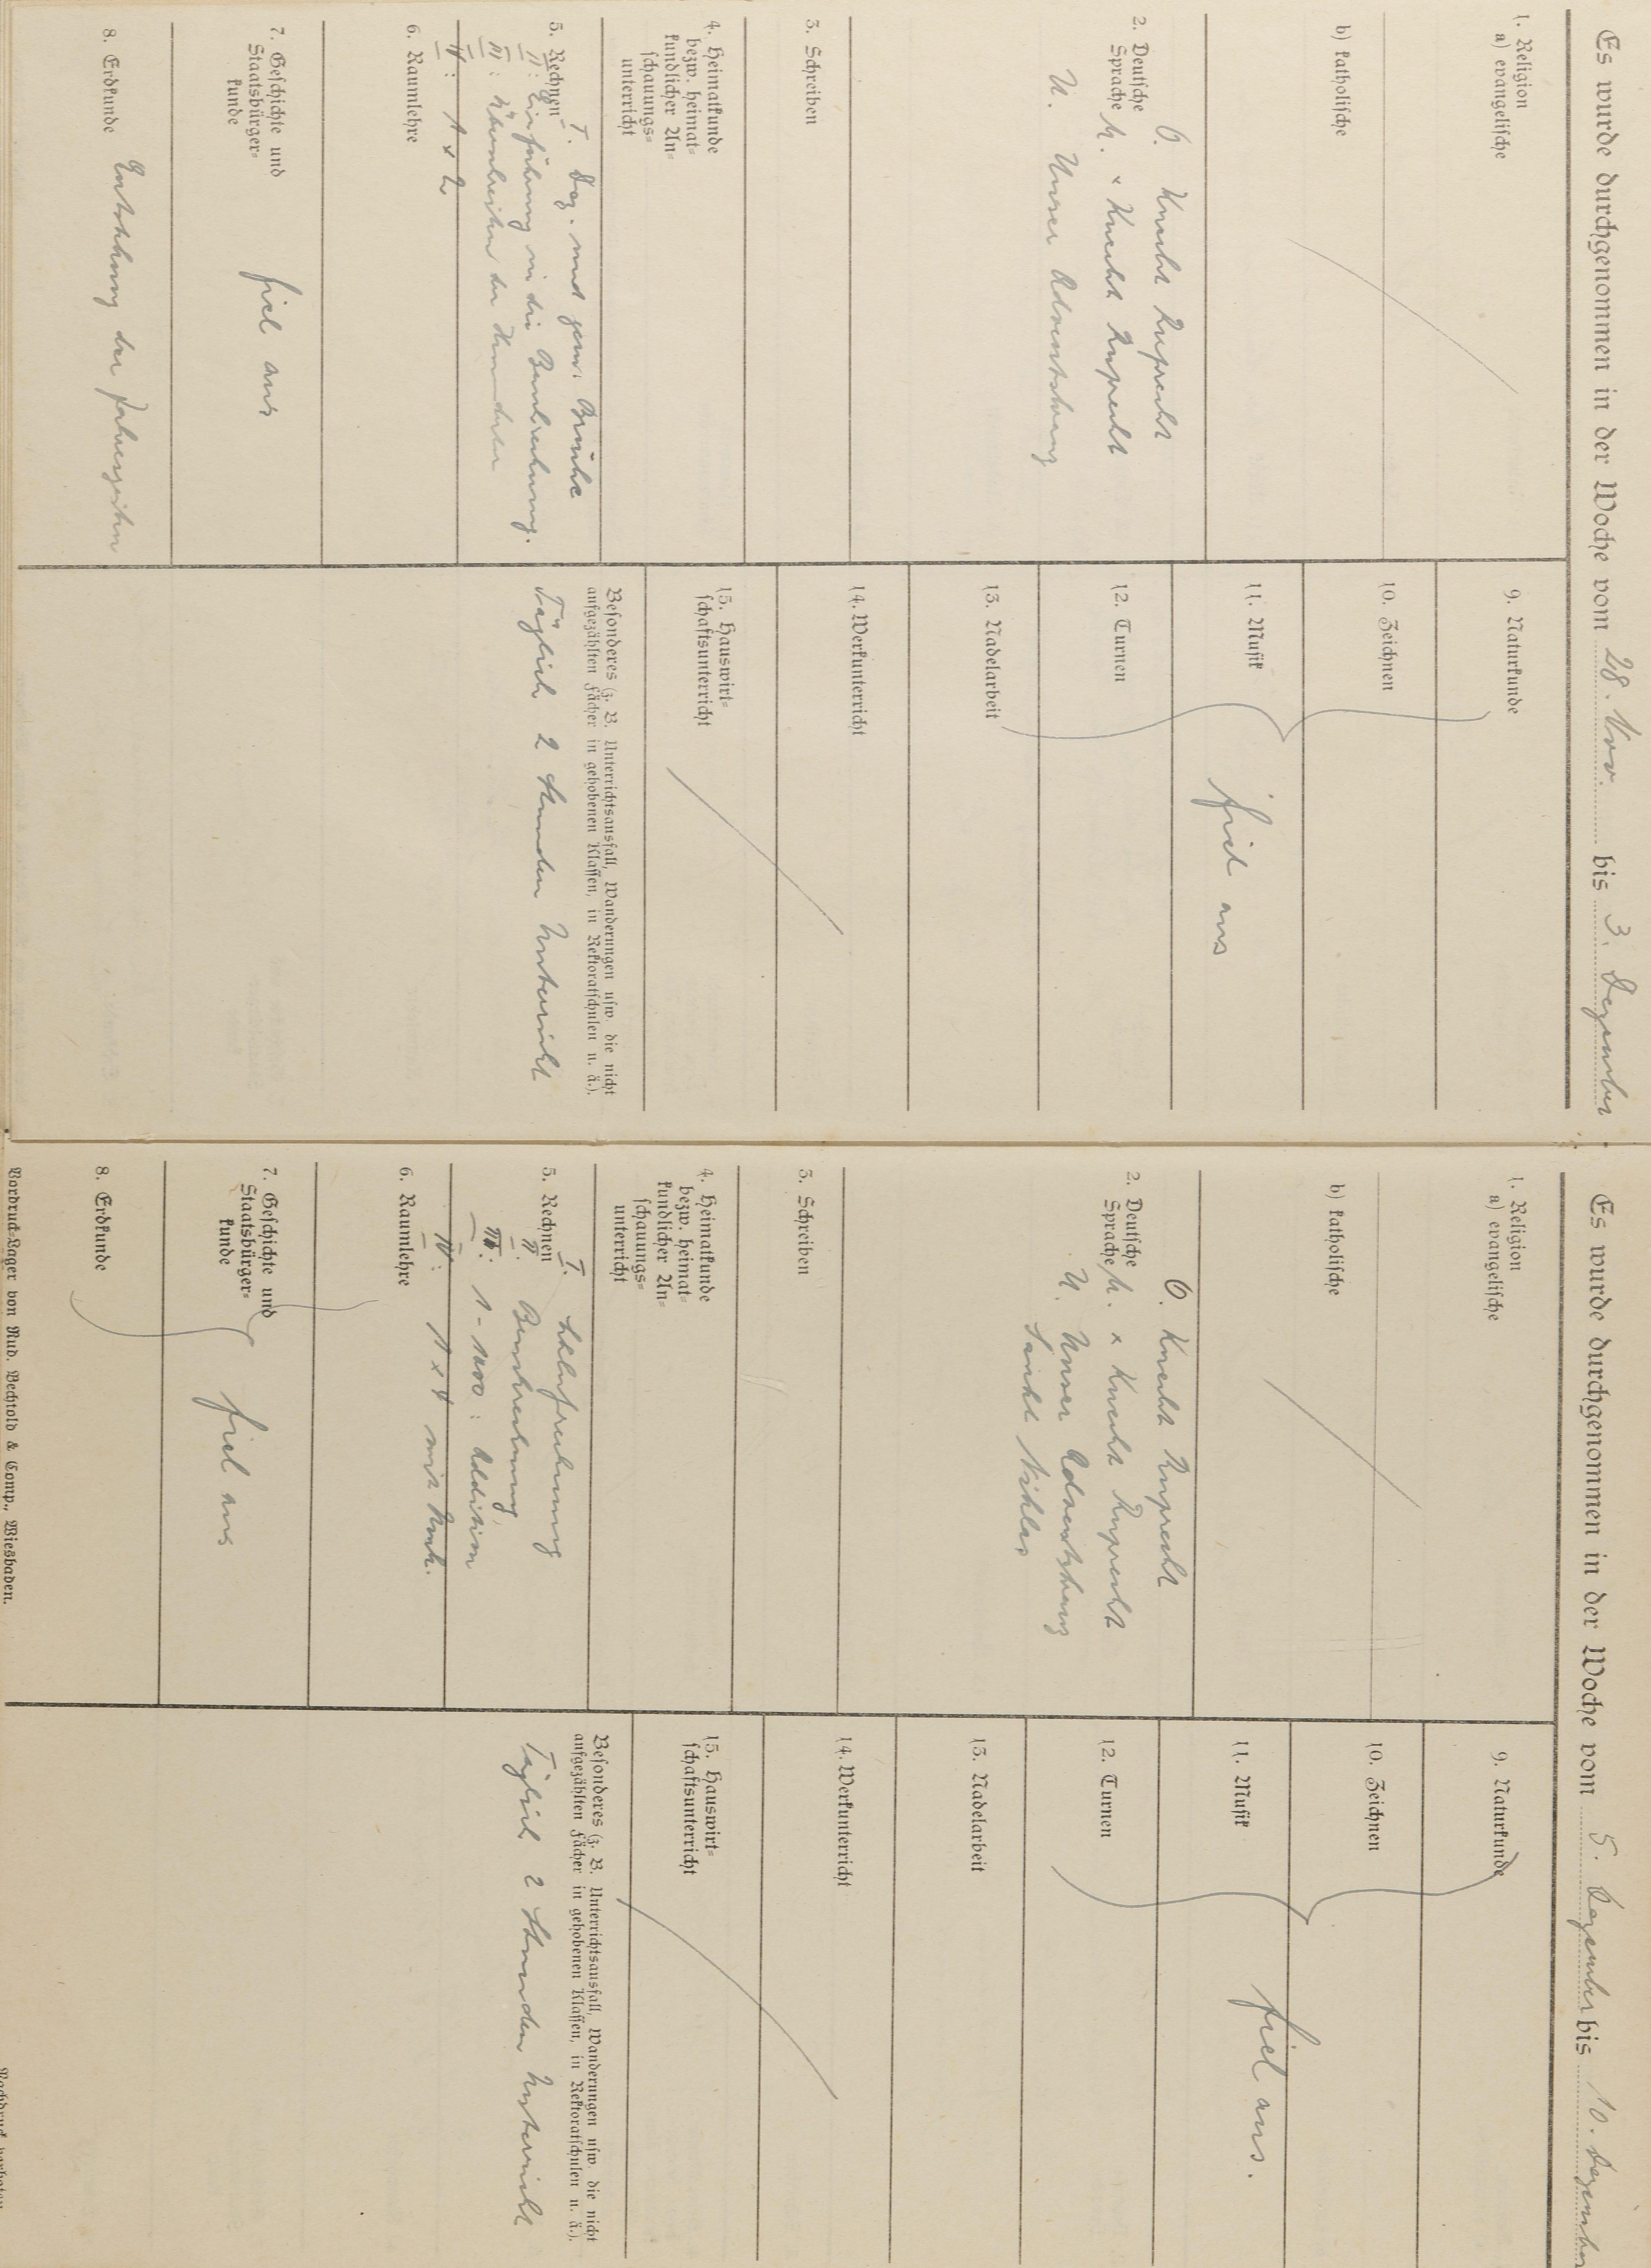 Es wurde durchgenommen in der Woche vom 28. Nov. bis 3. Dezember
1. Religion
a) evangelische
b) katholische
2. Deutsche
Sprache
O. Knecht Ruprecht
M. x Knecht Ruprecht
U. Unser Adventskranz
3. Schreiben
4. Heimatkunde
bezw. heimat-
kundlicher An-
schauungs-
unterricht
5. Rechnen
I. Dez. und gem. Brüche
II: Einführung in die Bruchrechnung.
III: Häuschen der
IV: 1 x 2
6. Raumlehre
7. Geschichte und
Staatsbürger-
kunde
fiel aus
8. Erdkunde
Entstehung der Jahreszeiten
9. Naturkunde
10. Zeichnen
11. Musik
fiel aus
12. Turnen
13. Nadelarbeit
14. Werkunterricht
15. Hauswirt-
schaftsunterricht
Besonderes (z. B. Unterrichtsausfall, Wanderungen usw. die nicht
aufgezählten Fächer in gehobenen Klassen, in Rektoratschulen u. ä.).
Täglich 2 Stunden Unterricht
Es wurde durchgenommen in der Woche vom 5. Dezember bis 10. Dezember
1. Religion
a) evangelische
b) katholische
2. Deutsche
Sprache
O. Knecht Ruprecht
M. x Knecht Ruprecht
U. Unser Adventskranz
Sankt Niklas
3. Schreiben
4. Heimatkunde
bezw. heimat-
kundlicher An-
schauungs-
unterricht
5. Rechnen
I. Schlußrechnung
II. Bruchrechnung
III: 1 - 1000: Addition
IV: 1 x 4 mit
6. Raumlehre
7. Geschichte und
Staatsbürger-
kunde
fiel aus
8. Erdkunde
9. Naturkunde
10. Zeichnen
11. Musik
fiel aus.
12. Turnen
13. Nadelarbeit
14. Werkunterricht
15. Hauswirt-
schaftsunterricht
Besonderes (z. B. Unterrichtsausfall, Wanderungen usw. die nicht
aufgezählten Fächer in gehobenen Klassen, in Rektoratschulen u. ä.).
Täglich 2 Stunden Unterricht
Vordruck-Lager von Rud. Bechtold & Comp., Wiesbaden.
Nachdruck verboten